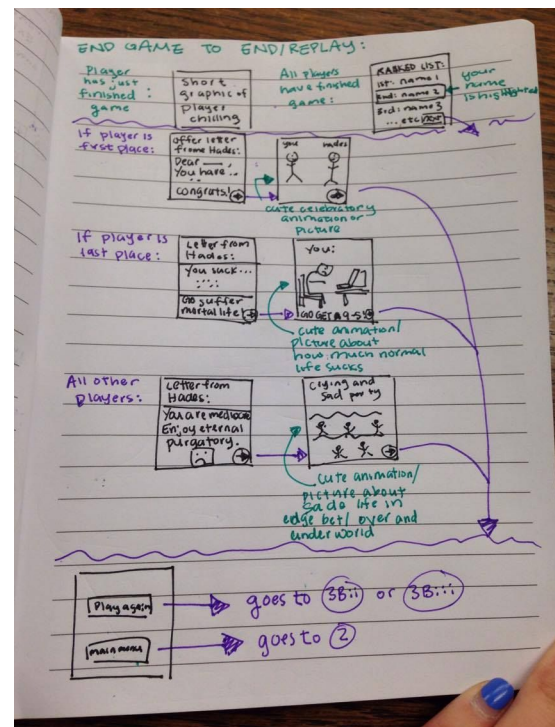 END GAME TO END/REPLAY:
Player
has just
finished
game :
Short
graphic of
player
chilling
All players
have finished
game:
RANKED LIST:
1st: name 1
2nd: name 2
3rd: name 3
... etc
your
name
is highlighted
If player is
first place:
Offer letter
from Hades:
Dear
You have ..
congrats!
you
hades
cute celebratory
animation or
picture
If player is
last place:
Letter from
Hades:
You suck...
Go suffer
mortal life!
You:
GO GET A 9-5
cute animation/
picture about
how much normal
life sucks
All other
players:
Letter from
Hades:
You are mediocre
Enjoy eternal
purgatory.
Crying and
sad party
cute animation/
picture about
life in
edge bet/ over and
underworld
Play again
goes to 3Bii or 3Biii
main menu
goes to 2